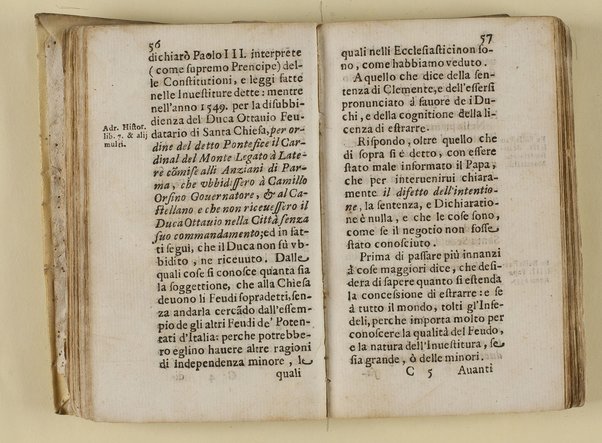 56
dichiarò Paolo III. interprete
(come supremo Prencipe) del-
le Constitutioni, e leggi fatte
nelle Inuestiture dette: mentre
nell'anno 1549. per la disubbi-
dienza del Duca Ottauio Feu-
Adr. Histor.
lib. 7. & alij
multi.
datario di Santa Chiesa, per or-
dine del detto Pontefice il Car-
dinal del Monte Legato à Late-
re cõmise alli Anziani di Par-
ma, che vbbidissero à Camillo
Orsino Gouernatore, & al Ca-
stellano e che non riceuessero il
Duca Ottauio nella Città senza
suo commandamento; ed in fat-
ti seguì, che il Duca non fù vb-
bidito, ne riceuuto. Dalle
quali cose si conosce quanta sia
la soggettione, che alla Chiesa
deuono li Feudi sopradetti, sen-
za andarla cercãdo dall'essem-
pio de gli altri Feudi de' Poten-
tati d'Italia: perche potrebbe-
ro eglino hauere altre ragioni
di independenza minore, le
quali
57
quali nelli Ecclesiastici non so-
no, come habbiamo veduto.
A quello che dice della sen-
tenza di Clemente, e dell'essersi
pronunciato à fauore de i Du-
chi, e della cognitione della li-
cenza di estrarre.
Rispondo, oltre quello che
di sopra si è detto, con essere
stato male informato il Papa,
che per interuenirui chiara-
mente il difetto dell'intentio-
ne, la sentenza, e Dichiaratio-
ne è nulla, e che le cose sono,
come se il negotio non fosse
stato conosciuto.
Prima di passare più innanzi
à cose maggiori dice, che desi-
dera di sapere quanto si estenda
la concessione di estrarre: e se
à tutto il mondo, tolti gl'Infe-
deli, perche importa molto per
conoscere la qualità del Feudo,
e la natura dell'Inuestitura, se
sia grande, ò delle minori.
C 5 Auanti